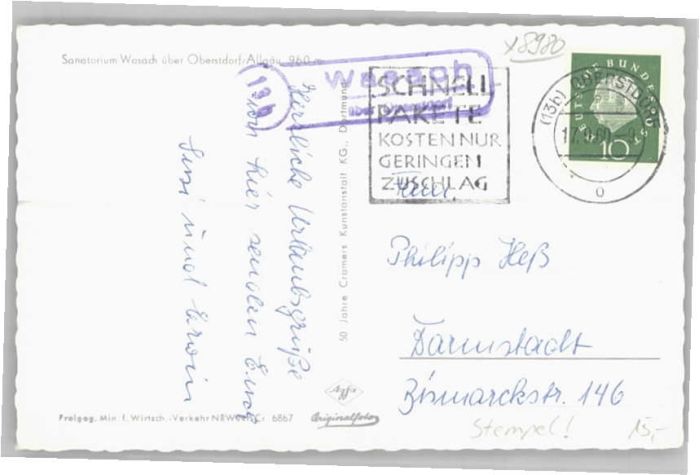 Sanatorium Wasach über Oberstdorf/Allgäu, 960 m
x8980
13b
Wasach
über Oberstdorf
SCHNELL-
PAKETE
KOSTEN NUR
GERINGEN
ZUSCHLAG
(13b) OBERSTDORF
DEUTSCHE BUNDESPOST
10
Herzliche Urlaubsgrüße
von hier senden Eure
Susi und Erwin
50 Jahre Cramers Kunstanstalt KG., Dortmund
Philipp Heß
Darmstadt
Bismarckstr. 146
Stempel!
15,-
Agfa
Originalfoto
Freigeg. Min. f. Wirtsch. u. Verkehr NRW 6867